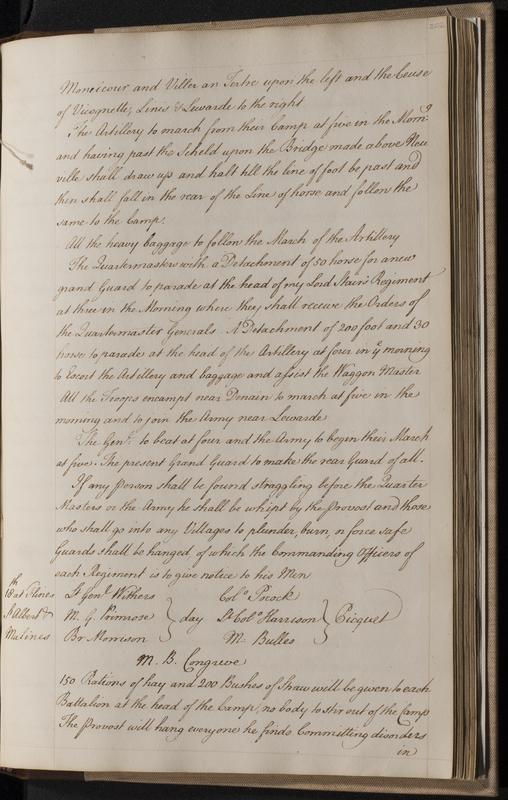 Moncicour and Viller an Tertre upon the left and the Cense
of Vicognette, Linis & Lewarde to the right
The Artillery to march from their Camp at five in the Morn:g
and having past the Scheld upon the Bridge made above Neu
ville shall draw up and halt till the line of foot be past and
then shall fall in the rear of the Line of horse and follow the
same to the Camp.
All the heavy baggage to follow the March of the Artillery
The Quartermasters with a Detachment of 50 horse for a new
grand Guard to parade at the head of my Lord Stairs Regiment
at three in the Morning where they shall receive the Orders of
the Quartermaster Generals. A Detachment of 200 foot and 30
horse to parade at the head of the Artillery at four in ye morning
to Escort the Artillery and baggage and assist the Waggon Master
All the Troops encampt near Denain to march at five in the
morning and to join the Army near Lewarde
The Genll. to beat at four and the Army to begin their March
at five. The present Grand Guard to make the rear Guard of all.
If any person shall be found straggling before the Quarter
Masters or the Army he shall be whipt by the Provost and those
who shall go into any Villages to plunder, burn, or force safe
Guards shall be hanged, of which the Commanding Officers of
each Regiment is to give notice to his Men
th
18 at Lt Genl. Withers Colo Pocock
St Albert M. G. Primrose day Lt Colo Harrison Picquet
Malines Br Morrison M. Bulles
M. B. Congreve
150 Rations of hay and 200 Bushes of Straw will be given to each
Battalion at the head of the Camp, no body to stir out of the Camp
The Provost will hang everyone he finds Committing disorders
in